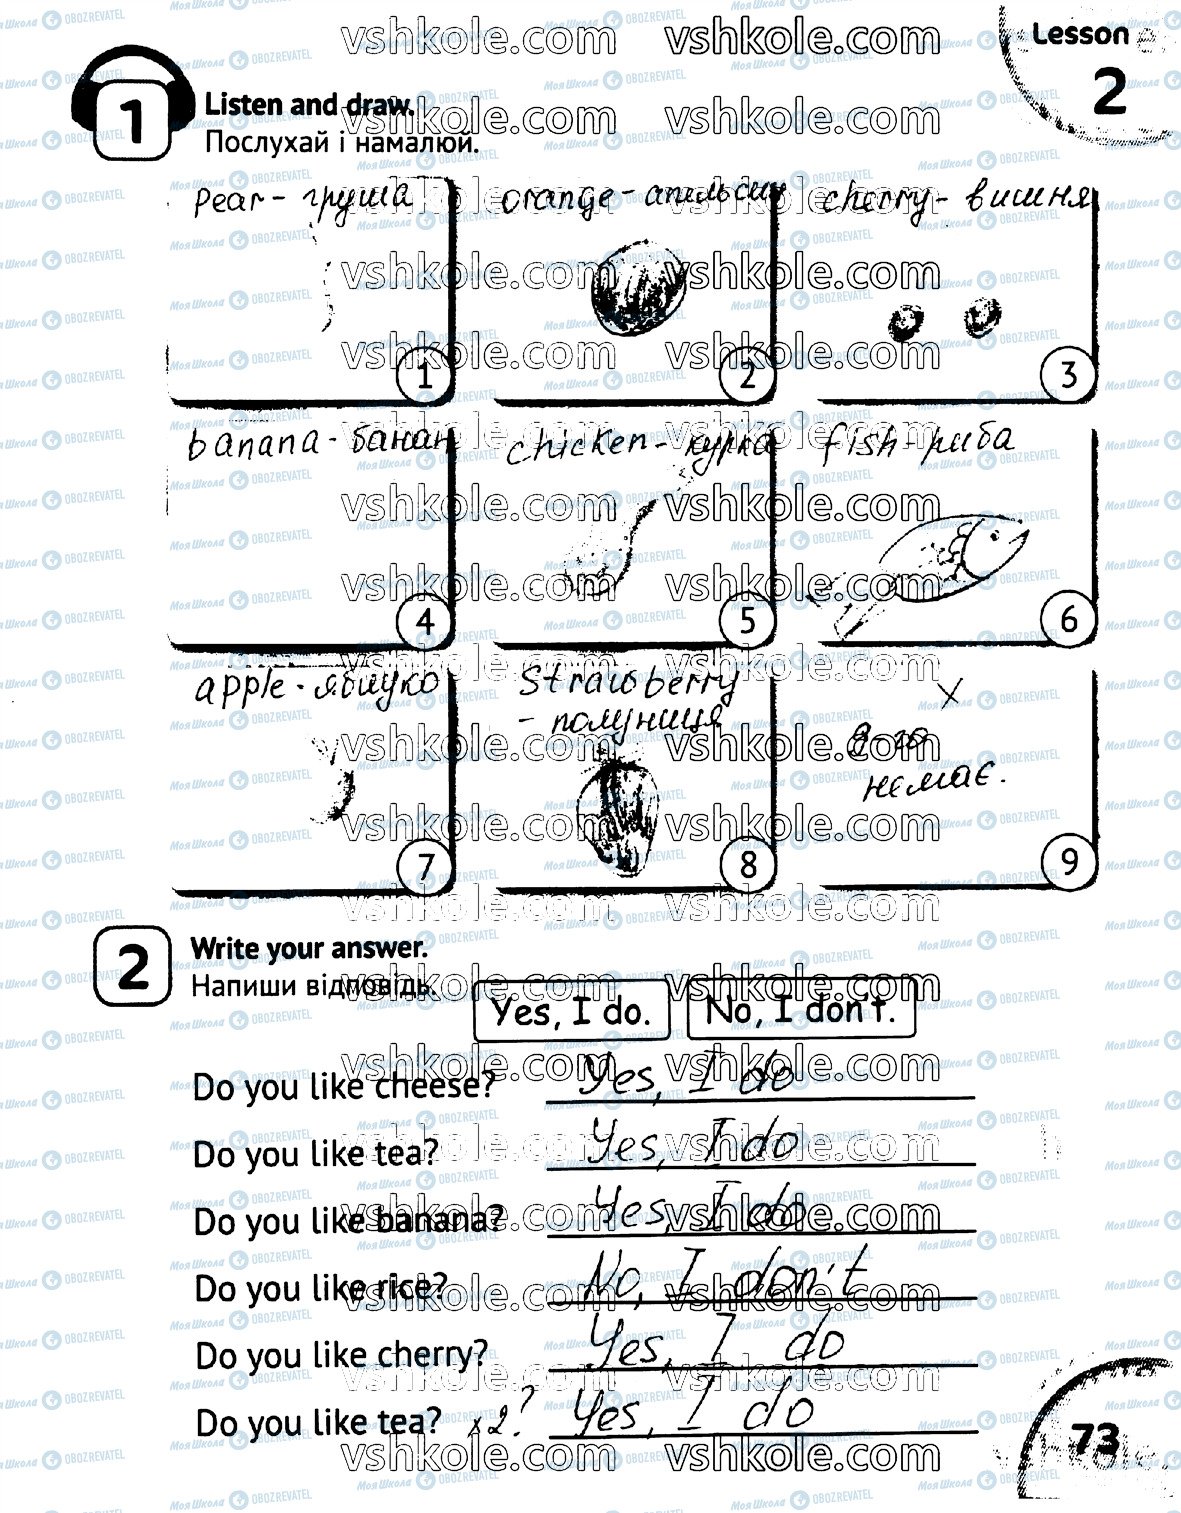 Lesson
2
1
Listen and draw.
Послухай і намалюй.
pear - груша
orange - апельсин
cherry - вишня
1
2
3
banana - банан
chicken - курка
fish - риба
4
5
6
apple - яблуко
Strawberry
- полуниця
X
9-го
немає.
7
8
9
2
Write your answer.
Напиши відповідь.
Yes, I do.
No, I don't.
Do you like cheese? Yes, I do
Do you like tea? Yes, I do
Do you like banana? Yes, I do
Do you like rice? No, I don't
Do you like cherry? Yes, I do
Do you like tea? x2? Yes, I do
73
vshkole.com
Моя Школа OBOZREVATEL